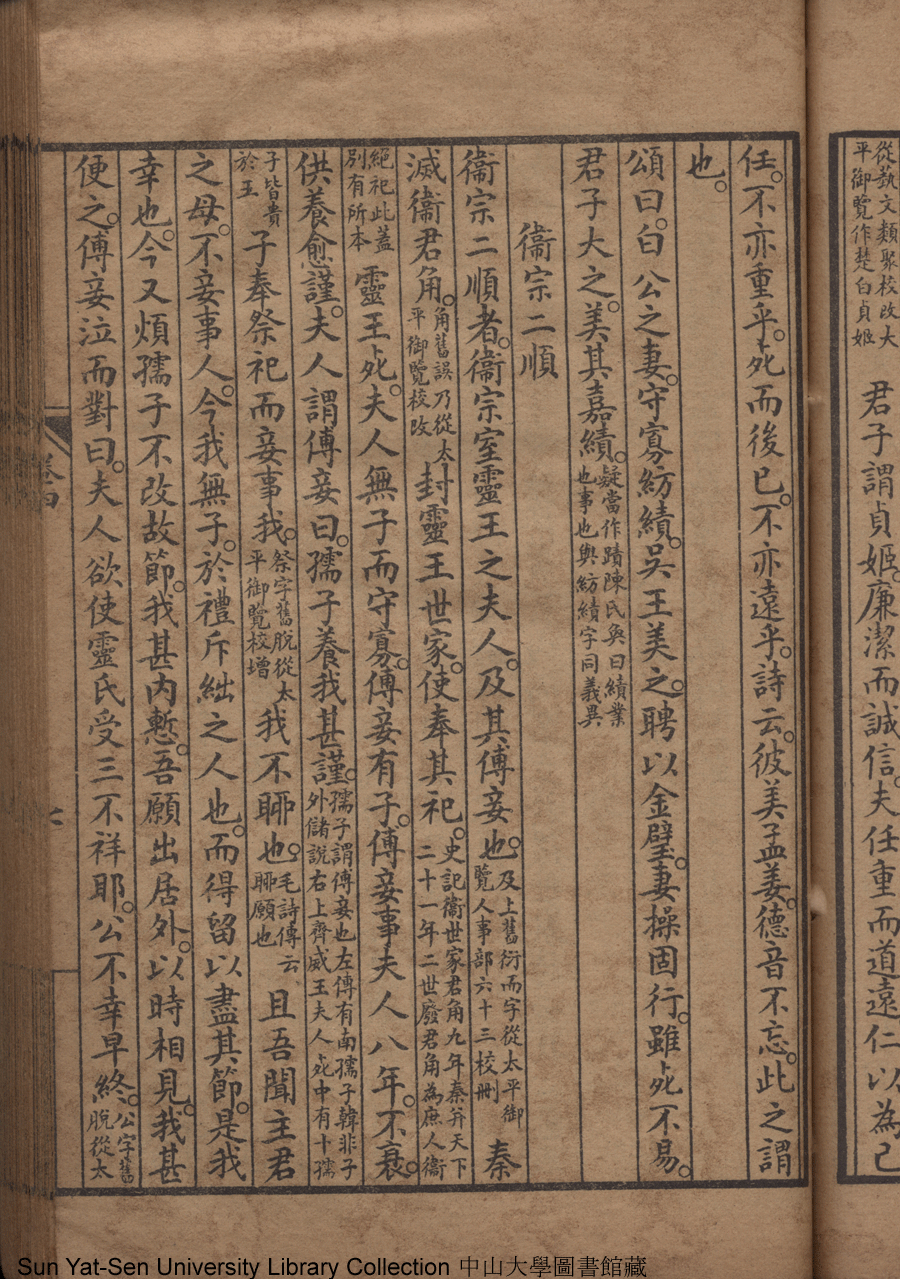 從蓺文類聚校改大
平御覽作楚白貞姬
君子謂貞姬。廉潔而誠信。夫任重而道遠仁以為己
任。不亦重乎。死而後已。不亦遠乎。詩云。彼美孟姜。德音不忘。此之謂
也。
頌曰。白公之妻。守寡紡績。吳王美之。聘以金璧。妻操固行。雖死不易。
君子大之。美其嘉績。
疑當作蹟陳氏奐曰績業
也事也與紡績字同義異
衞宗二順
衞宗二順者。衞宗室靈王之夫人。及其傅妾也。
及上舊衍而字從太平御
覽人事部六十三校刪
秦
滅衞君角。
角舊誤乃從太
平御覽校改
封靈王世家。使奉其祀。
史記衞世家君角九年秦幷天下
二十一年二世廢君角為庶人衞
絕祀此蓋
別有所本
靈王死。夫人無子而守寡。傅妾有子。傅妾事夫人八年。不衰。
供養愈謹。夫人謂傅妾曰。孺子養我甚謹。
孺子謂傅妾也左傳有南孺子韓非子
外儲說右上齊威王夫人死中有十孺
子皆貴
於王
子奉祭祀而妾事我。
祭字舊脫從太
平御覽校增
我不聊也。
毛詩傳云
聊願也
且吾聞主君
之母。不妾事人。今我無子。於禮斥絀之人也。而得留以盡其節。是我
幸也。今又煩孺子不改故節。我甚內慙。吾願出居外。以時相見。我甚
便之。傅妾泣而對曰。夫人欲使靈氏受三不祥耶。公不幸早終。
公字舊
脫從太
卷四
七
Sun Yat-Sen University Library Collection 中山大學圖書館藏